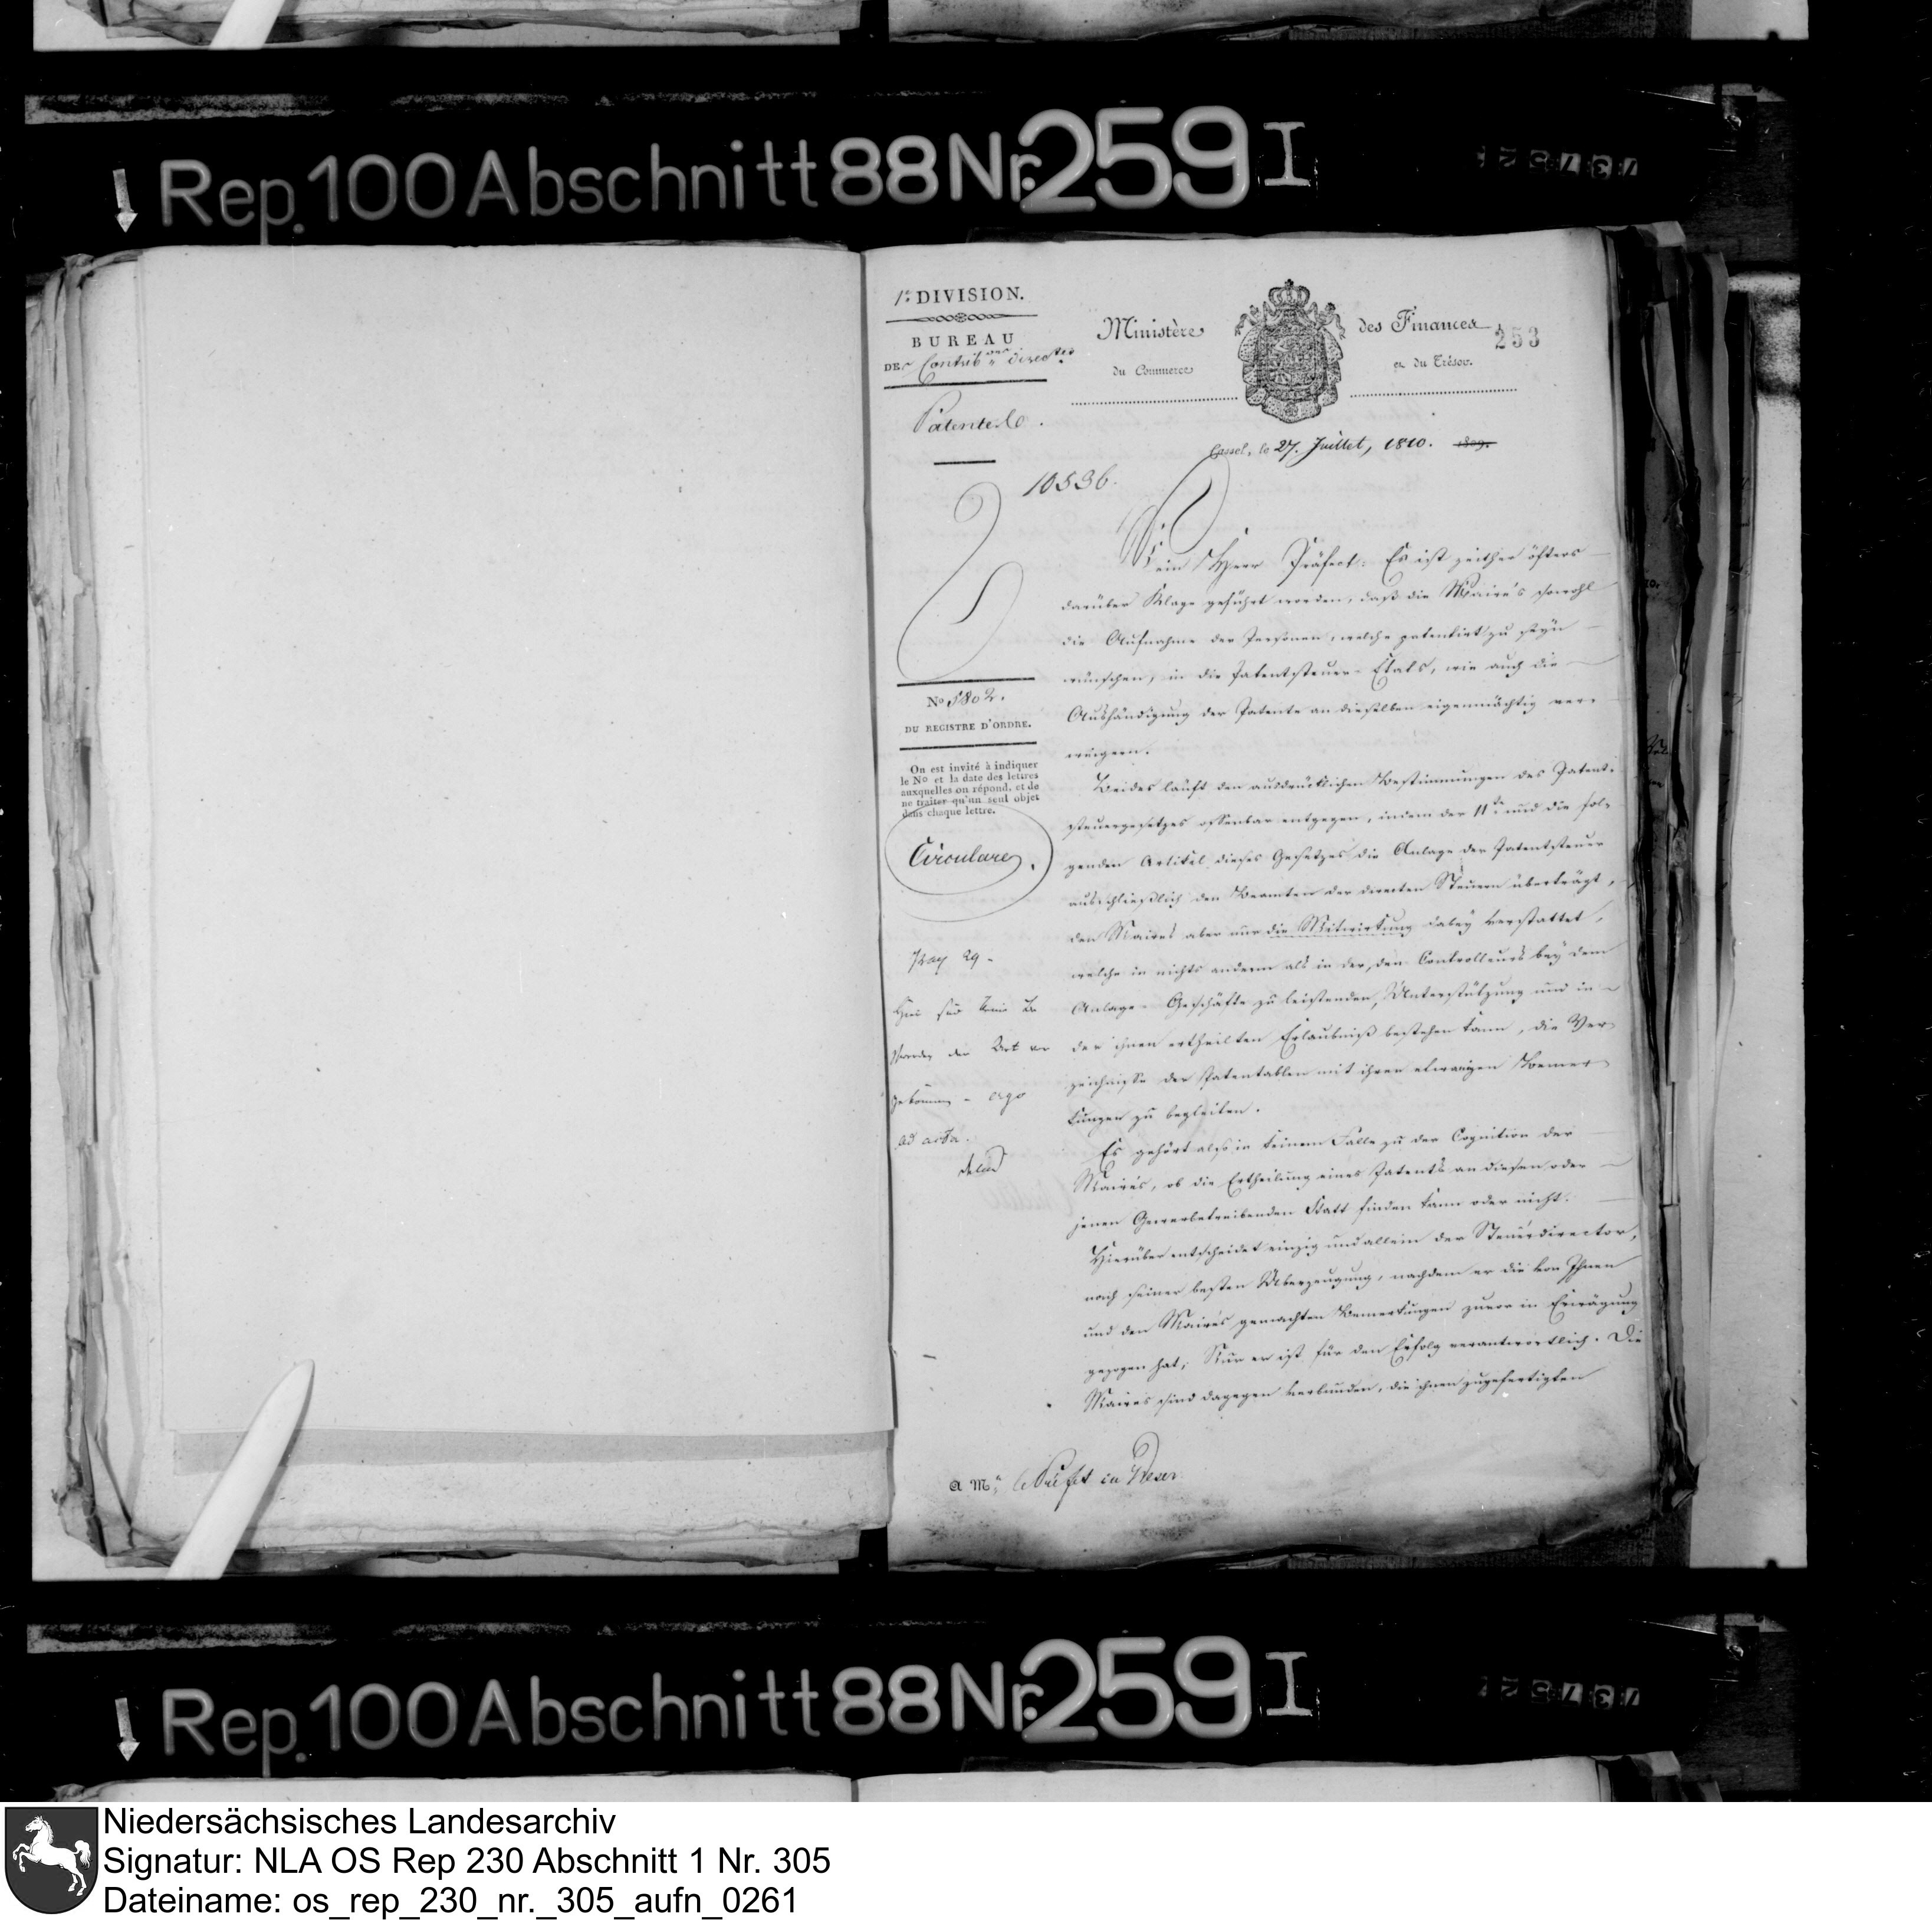 Rep. 100 Abschnitt 88 Nr. 259 I
1e. DIVISION.
BUREAU
DEs Contribons directes
Patente.
Ministère des Finances
du Commerce et du Trésor.
253
Cassel, le 27. Juillet, 1810. 1809.
10536.
Mein Herr Präfect: Es ist zeither öfters
darüber Klage geführt worden, daß die Maire's sowohl
die Aufnahme der Personen, welche patentirt zu seyn
wünschen, in die Patentsteuer-Etats, wie auch die
Aushändigung der Patente an dieselben eigenmächtig ver-
weigern.
Beides läuft den ausdrücklichen Bestimmungen des Patent-
steuergesetzes offenbar entgegen, indem der 11te und die fol-
genden Artikel dieses Gesetzes die Anlage der Patentsteuer
ausschließlich den Beamten der directen Steuern überträgt,
den Maires aber nur die Mitwirkung dabey verstattet,
welche in nichts anderm als in der, den Controlleurs bey dem
Anlage-Geschäfte zu leistenden, Unterstützung und in
der ihnen ertheilten Erlaubniß bestehen kann, die Ver-
zeichnisse der Patentablen mit ihren etwanigen Bemer-
kungen zu begleiten.
Es gehört also in keinem Falle zu der Cognition der
Maires, ob die Ertheilung eines Patents an diesen oder
jenen Gewerbetreibenden Statt finden kann oder nicht.
Hierüber entscheidet einzig und allein der Steuerdirector,
nach seiner besten Überzeugung, nachdem er die von Ihnen
und den Maires gemachten Bemerkungen zuvor in Erwägung
gezogen hat; Nur er ist für den Erfolg verantwortlich. Die
Maires sind dagegen verbunden, die ihnen zugefertigten
No 5802.
DU REGISTRE D'ORDRE.
On est invité à indiquer
le No et la date des lettres
auxquelles on répond, et de
ne traiter qu'un seul objet
dans chaque lettre.
Circulare.
29
Hier sind keine Be
der Art vor
gekommen - ergo
ad acta.
a Mr. le Préfet du Weser
Rep. 100 Abschnitt 88 Nr. 259 I
Niedersächsisches Landesarchiv
Signatur: NLA OS Rep 230 Abschnitt 1 Nr. 305
Dateiname: os_rep_230_nr._305_aufn_0261